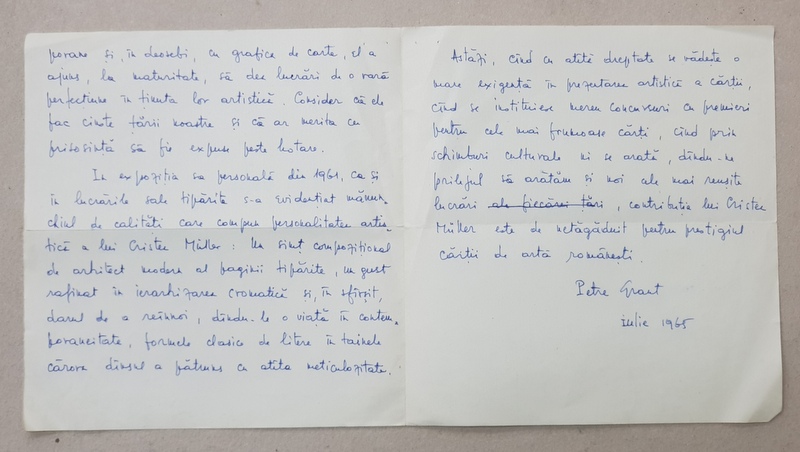 porane și, în deosebi, cu grafica de carte, el a
ajuns, la maturitate, să dea lucrări de o rară
perfecțiune în ținuta lor artistică. Consider că ele
fac cinste țării noastre și că ar merita cu
prisosință să fie expuse peste hotare.
In expoziția sa personală din 1961, ca și
în lucrările sale tipărite s-a evidențiat mănun-
chiul de calități care compun personalitatea artis-
tică a lui Cristea Müller: Un simț compozițional
de arhitect modern al paginii tipărite, un gust
rafinat în ierarhizarea cromatică și, în sfîrșit,
darul de a reînnoi, dîndu-le o viață în contem-
poraneitate, formele clasice de litere în tainele
cărora dînsul a pătruns cu atîta meticulozitate.
Astăzi, cînd cu atîta dreptate se vădește o
mare exigență în prezentarea artistică a cărții,
cînd se instituiesc mereu concursuri cu premieri
pentru cele mai frumoase cărți, cînd prin
schimburi culturale ni se arată, dîndu-ne
prilejul să arătăm și noi cele mai reușite
lucrări ale fiecărei țări, contribuția lui Cristea
Müller este de netăgăduit pentru prestigiul
cărții de artă românești.
Petre Grant
iulie 1965